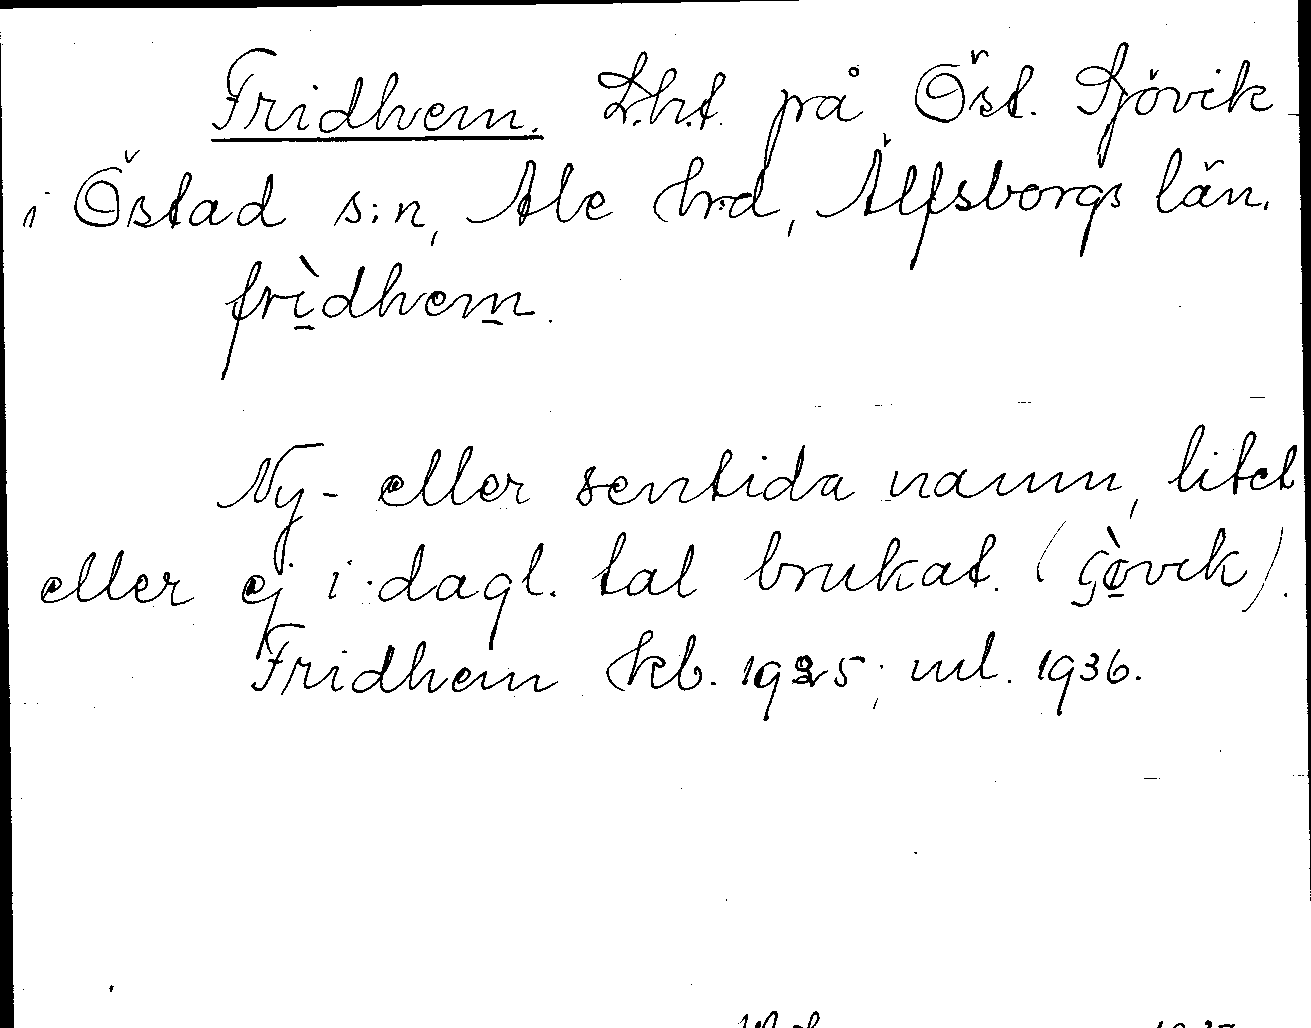 Fridhem. L.h.t. på Öst. Sjövik
i Östad s:n, Ale hrd, Älfsborgs län.
frìdhem.
Ny- eller sentida namn, litet
eller ej i dagl. tal brukat. (
Fridhem hkb. 1925; ml. 1936.